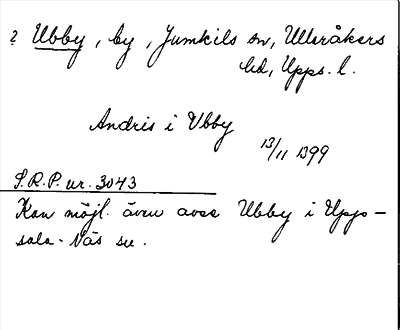 ? Ubby, by, Jumkils sn, Ulleråkers
hd, Upps. l.
Andris i Vbby
13/11 1399
S.R.P. nr. 3043
Kan möjl. även avse Ubby i Upp-
sala-Näs sn.